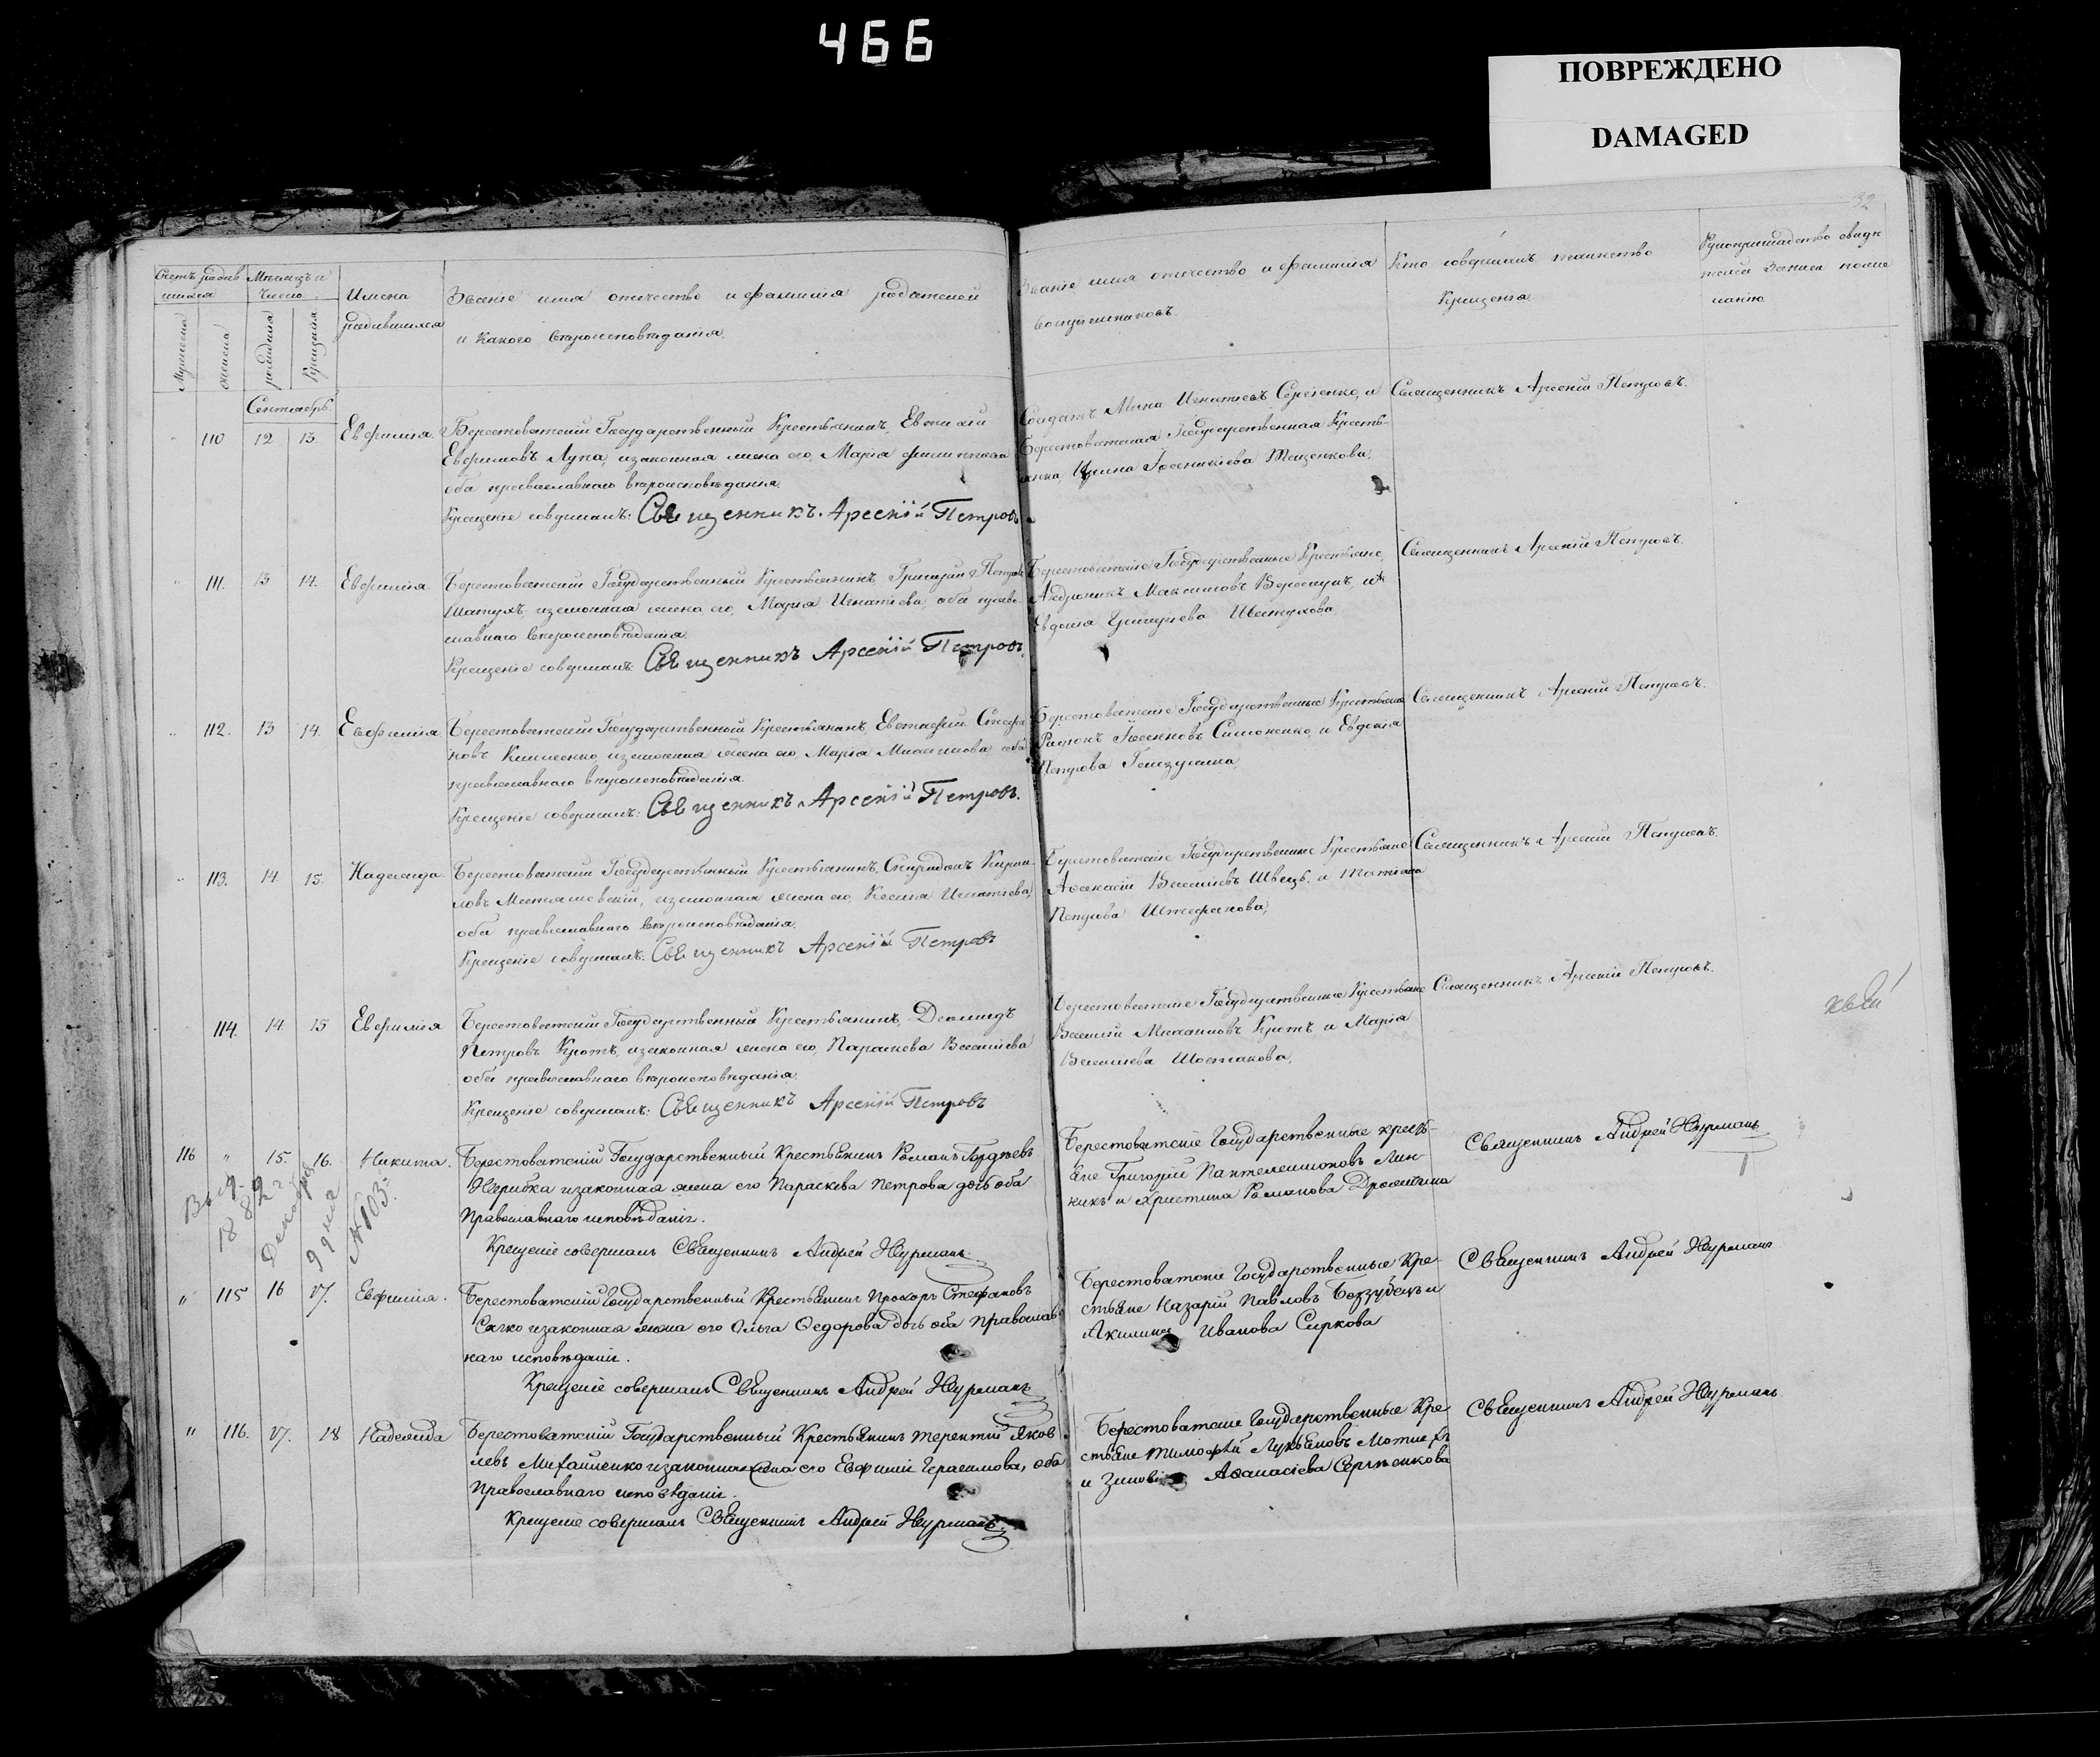 466
ПОВРЕЖДЕНО
DAMAGED
32
Счетъ родив
шихся
Мѣсяцъ и
число
Имена
родившихся
Званіе имя отчество и фамилія родителей
и какого вѣроисповѣданія.
Званіе имя отчество и фамилія
воспріемниковъ.
Кто совершалъ таинство
Крещенія
Рукоприкладство свидѣ
телей записи по же
ланію
Мужеска
женска
рожденія
Крещенія
Сентябрь
110 12 13. Евфимія. Берестоватскій Государственный Крестьянинъ,
Евфимовъ Лупа, изаконная жена его, Марія Филиппова
оба православнаго вѣроисповѣданія.
Крещеніе совершалъ: Священникъ Арсеній Петровъ
Солдатъ Мина Игнатьевъ Сергѣенко, и
Берестоватская Государственная Кресть-
янка, Ирина Тищенкова,
Священникъ Арсеній Петровъ.
111. 13 14. Евфимія Берестоватскій Государственный Крестьянинъ, Григорій Петровъ
Шатухъ, изаконная жена его, Марія Игнатіева, оба право-
славнаго вѣроисповѣданія
Крещеніе совершалъ: Священникъ Арсеній Петровъ.
Берестоватскіе Государственные Крестьяне,
Андроникъ Максимовъ и
Евдокія Григорьева Шатухова,
Священникъ Арсеній Петровъ.
112. 13 14. Евфимія Берестоватскій Государственный Крестьянинъ, Евстафій Стефа
новъ Клименко, изаконная жена его, Марія оба
православнаго вѣроисповѣданія.
Крещеніе совершалъ: Священникъ Арсеній Петровъ.
Берестоватскіе Государственные Крестьяне
Симоненко, и Евдокія
Петрова
Священникъ Арсеній Петровъ.
113. 14. 15. Надежда Берестоватскій Государственный Крестьянинъ, Спиридонъ Кирил-
ловъ изаконная жена его, Ксенія Игнатіева,
оба православнаго вѣроисповѣданія.
Крещеніе совершалъ: Священникъ Арсеній Петровъ
Берестоватскіе Государственные Крестьяне
Аѳанасій Василіевъ Швецъ, и Татіана
Петрова Штефанова,
Священникъ Арсеній Петровъ.
114. 14 15 Евфимія Берестоватскій Государственный Крестьянинъ, Діомидъ
Петровъ Кротъ, изаконная жена его, Параскева Василіева
оба православнаго вѣроисповѣданія.
Крещеніе совершалъ: Священникъ Арсеній Петровъ
Берестоватскіе Государственные Крестьяне
Василій Михаиловъ Кротъ и Марія
Василіева Шостакова,
Священникъ Арсеній Петровъ.
116 " 15. 16. Никита. Берестоватскій Государственный Крестьянинъ Романъ Гордѣевъ
изаконная жена его Параскева Петрова дочь оба
Православнаго исповѣданія.
Крещеніе совершалъ Священникъ Андрей
Берестоватскіе Государственные кресть-
яне Григорій Пантелеимоновъ Лин-
никъ и Христина Романова
Священникъ Андрей
Выд.
1882 г
Декабря
9 дня
№ 103.
" 115 16 17. Евфимія. Берестоватскій Государственный Крестьянинъ Прохоръ Стефановъ
изаконная жена его Ольга Ѳедорова дочь оба православ
наго исповѣданія.
Крещеніе совершалъ Священникъ Андрей
Берестоватскіе Государственные Кре-
стьяне Назарій Павловъ Беззубецъ и
Акилина Иванова Сиркова
Священникъ Андрей
" 116. 17. 18 Надежда Берестоватскій Государственный Крестьянинъ Терентій Яков
левъ Михайленко изаконная жена его Евфимія Герасимова, оба
Православнаго исповѣданія.
Крещеніе совершалъ Священникъ Андрей
Берестоватскіе Государственные Кре
стьяне Тимофѣй Лукьяновъ
и Аѳанасіева Сергѣенкова
Священникъ Андрей